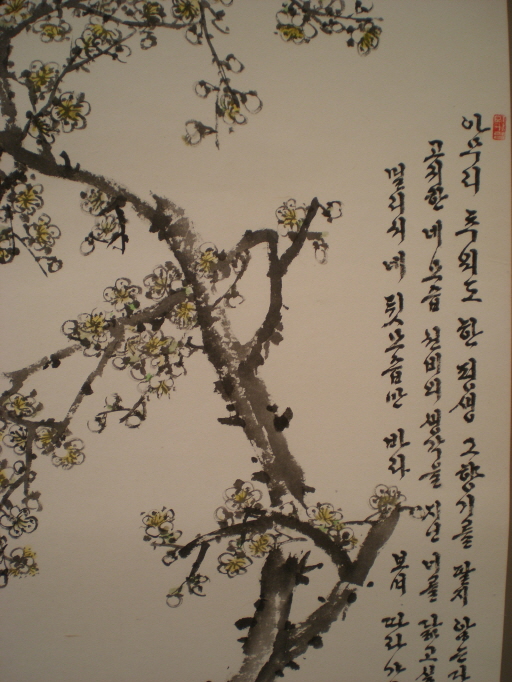 아무리 추워도 한평생 그 향기를 팔지 않는다
고치한 네 모습 선비의 생각을 지닌 너를 닮고
멀리서 네 뒷모습만 바라 보며 따라가